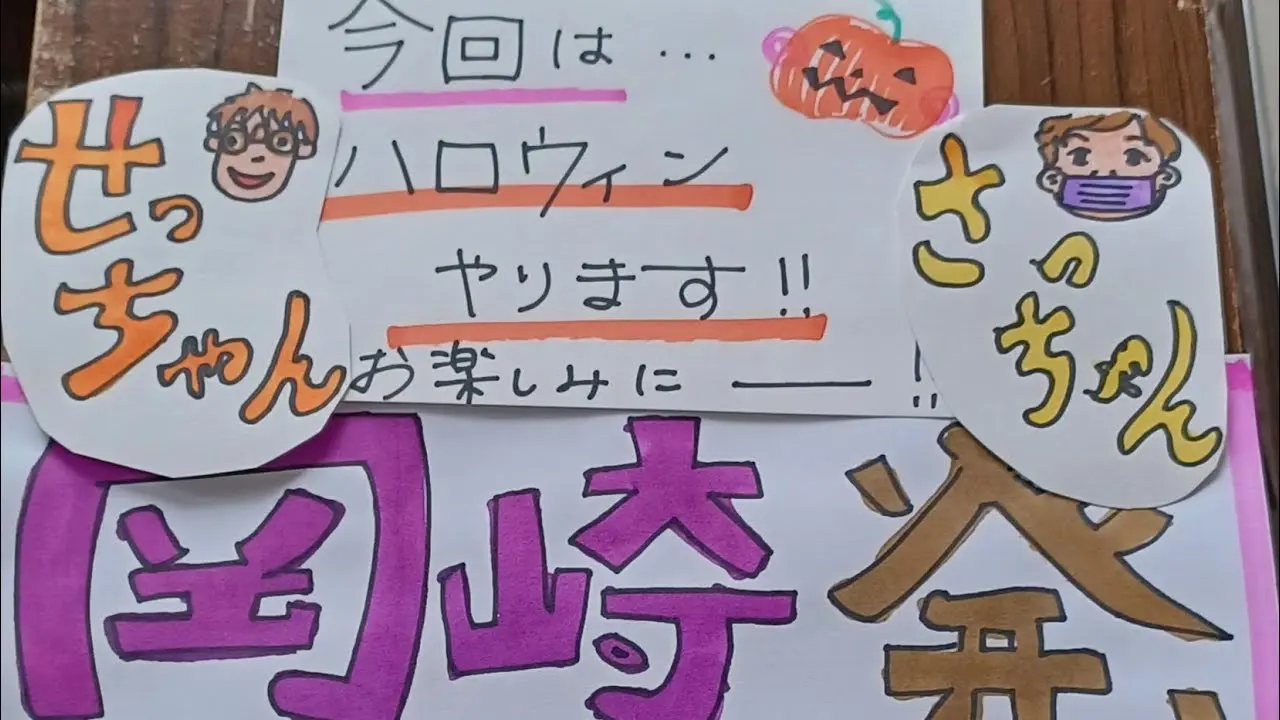 今回は…
ハロウィン
やります!!
お楽しみに――!!
せっ
ちゃん
さっ
ちゃん
岡崎発